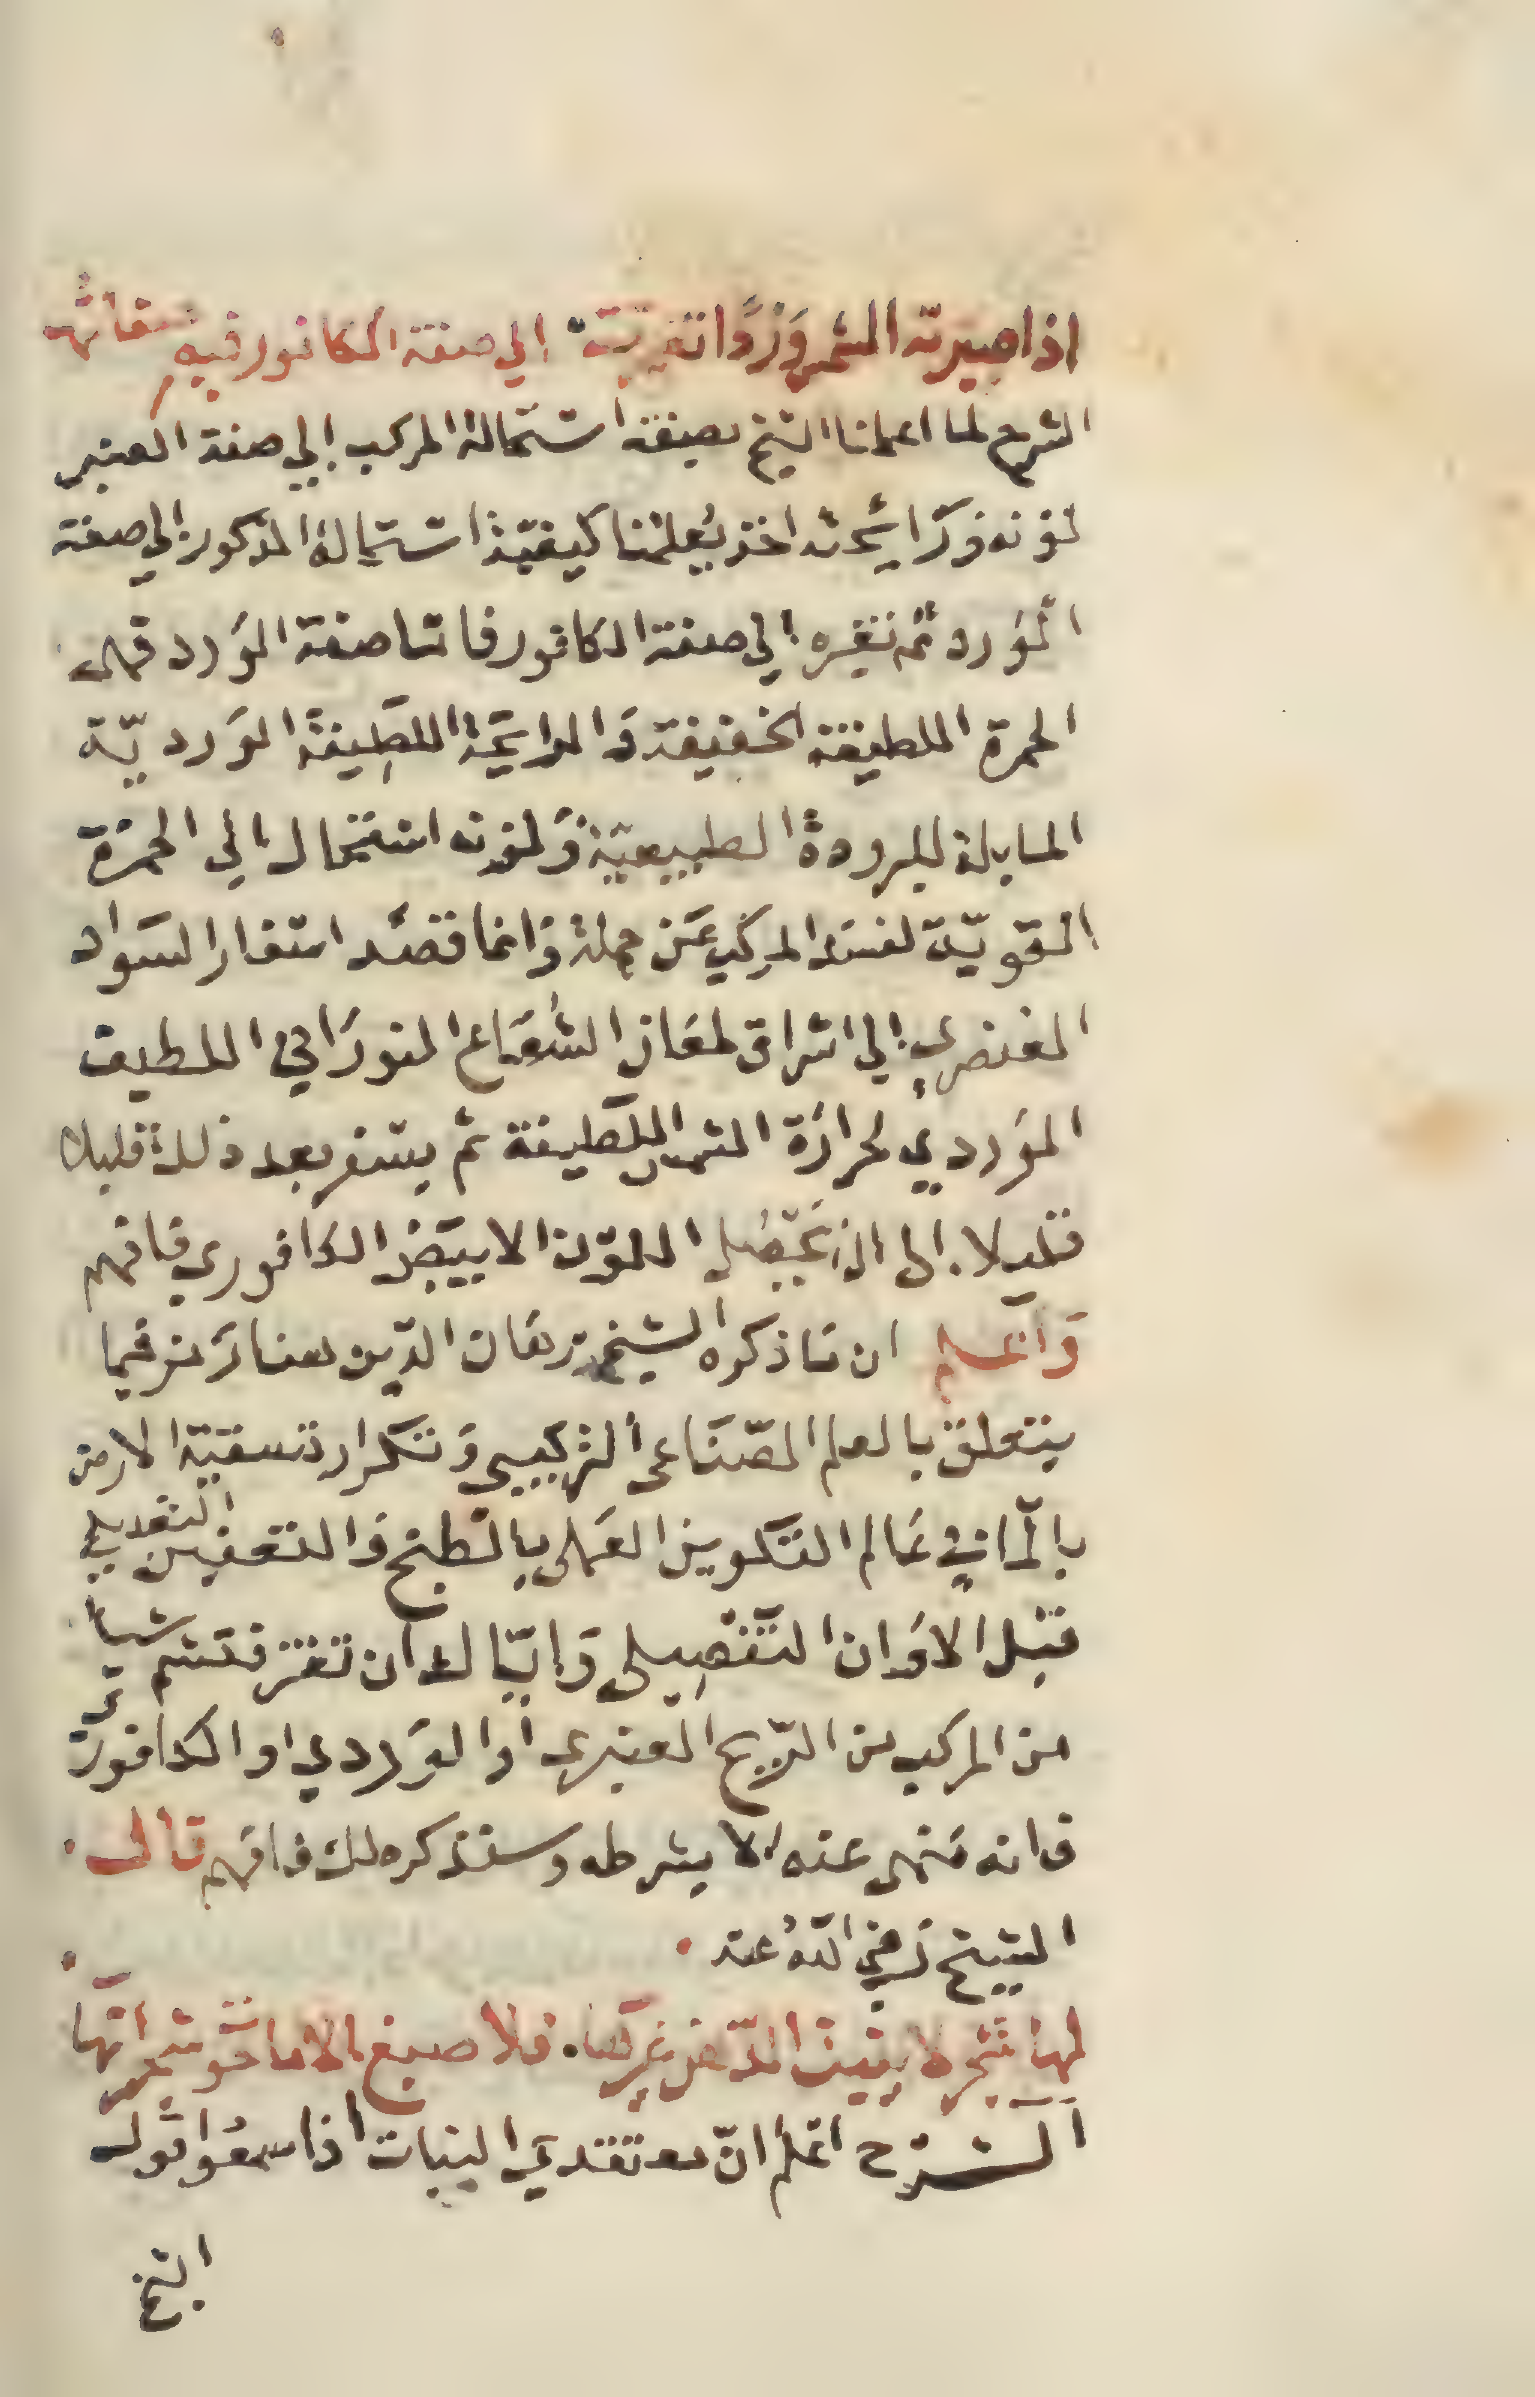 اذا صيرته الشمس وَرْدًا تغربت إلي صفة الكافور فيه
الشرح لما اعلمنا الشيخ بصيغة استحالة المركب إلي صفة العنبر
لونه ورايحته اخذ يُعلمنا كيفيّة استحالة المذكور إلي صفة
الوَرد ثم تغيره إلي صفة الكافور فامّا صفة الوَرد فهى
الحمرة اللطيفة الخفيفة وَالرايحَة اللطِيفة الوَرديّة
المايلة للبرودة الطبيعيّة وَلونه استحال إلي الحمْرة
القويّة لفسَد المركب عَن جملة وَانما قصَد اسفار السَواد
العنصرى إلي اشراق لمعَان الشُعَاع النورَاني اللطيف
الوَردي بحرارَة الشمس اللَطيفة ثم يسفر بعد ذلك قليلا
قليلا إلى ان يحْصُل اللوْن الابيَض الكافوري فافهم
وَاعَلم ان مَا ذكره الشيخ برهَان الدّين هنا رَمز فيما
يتعلق بالعلم الصّنَاعى التركيبى وَتكرار تسقيَة الارض
بالمَآ في عَالم التكوين العَملى بالطبخ وَالتعفين التعديلي
قبْل الاوَان التَفصِيلى وَايّاك ان تغتر فتشم شيا
من المركب من الرّيح العنبرى اوا الوَردي او الكافوري
فانه مَنهى عنه الا بشرطه وسنذكره لك فافهم قال
الشيخ رَضي الله عنه
لها شجر لا ينبت الدّهن غيرهَا فلا صبغ الا ما حَوَته
الشرْح اعَلم انّ معتقدي النبات اذا سمعُوا قول
الشيخ